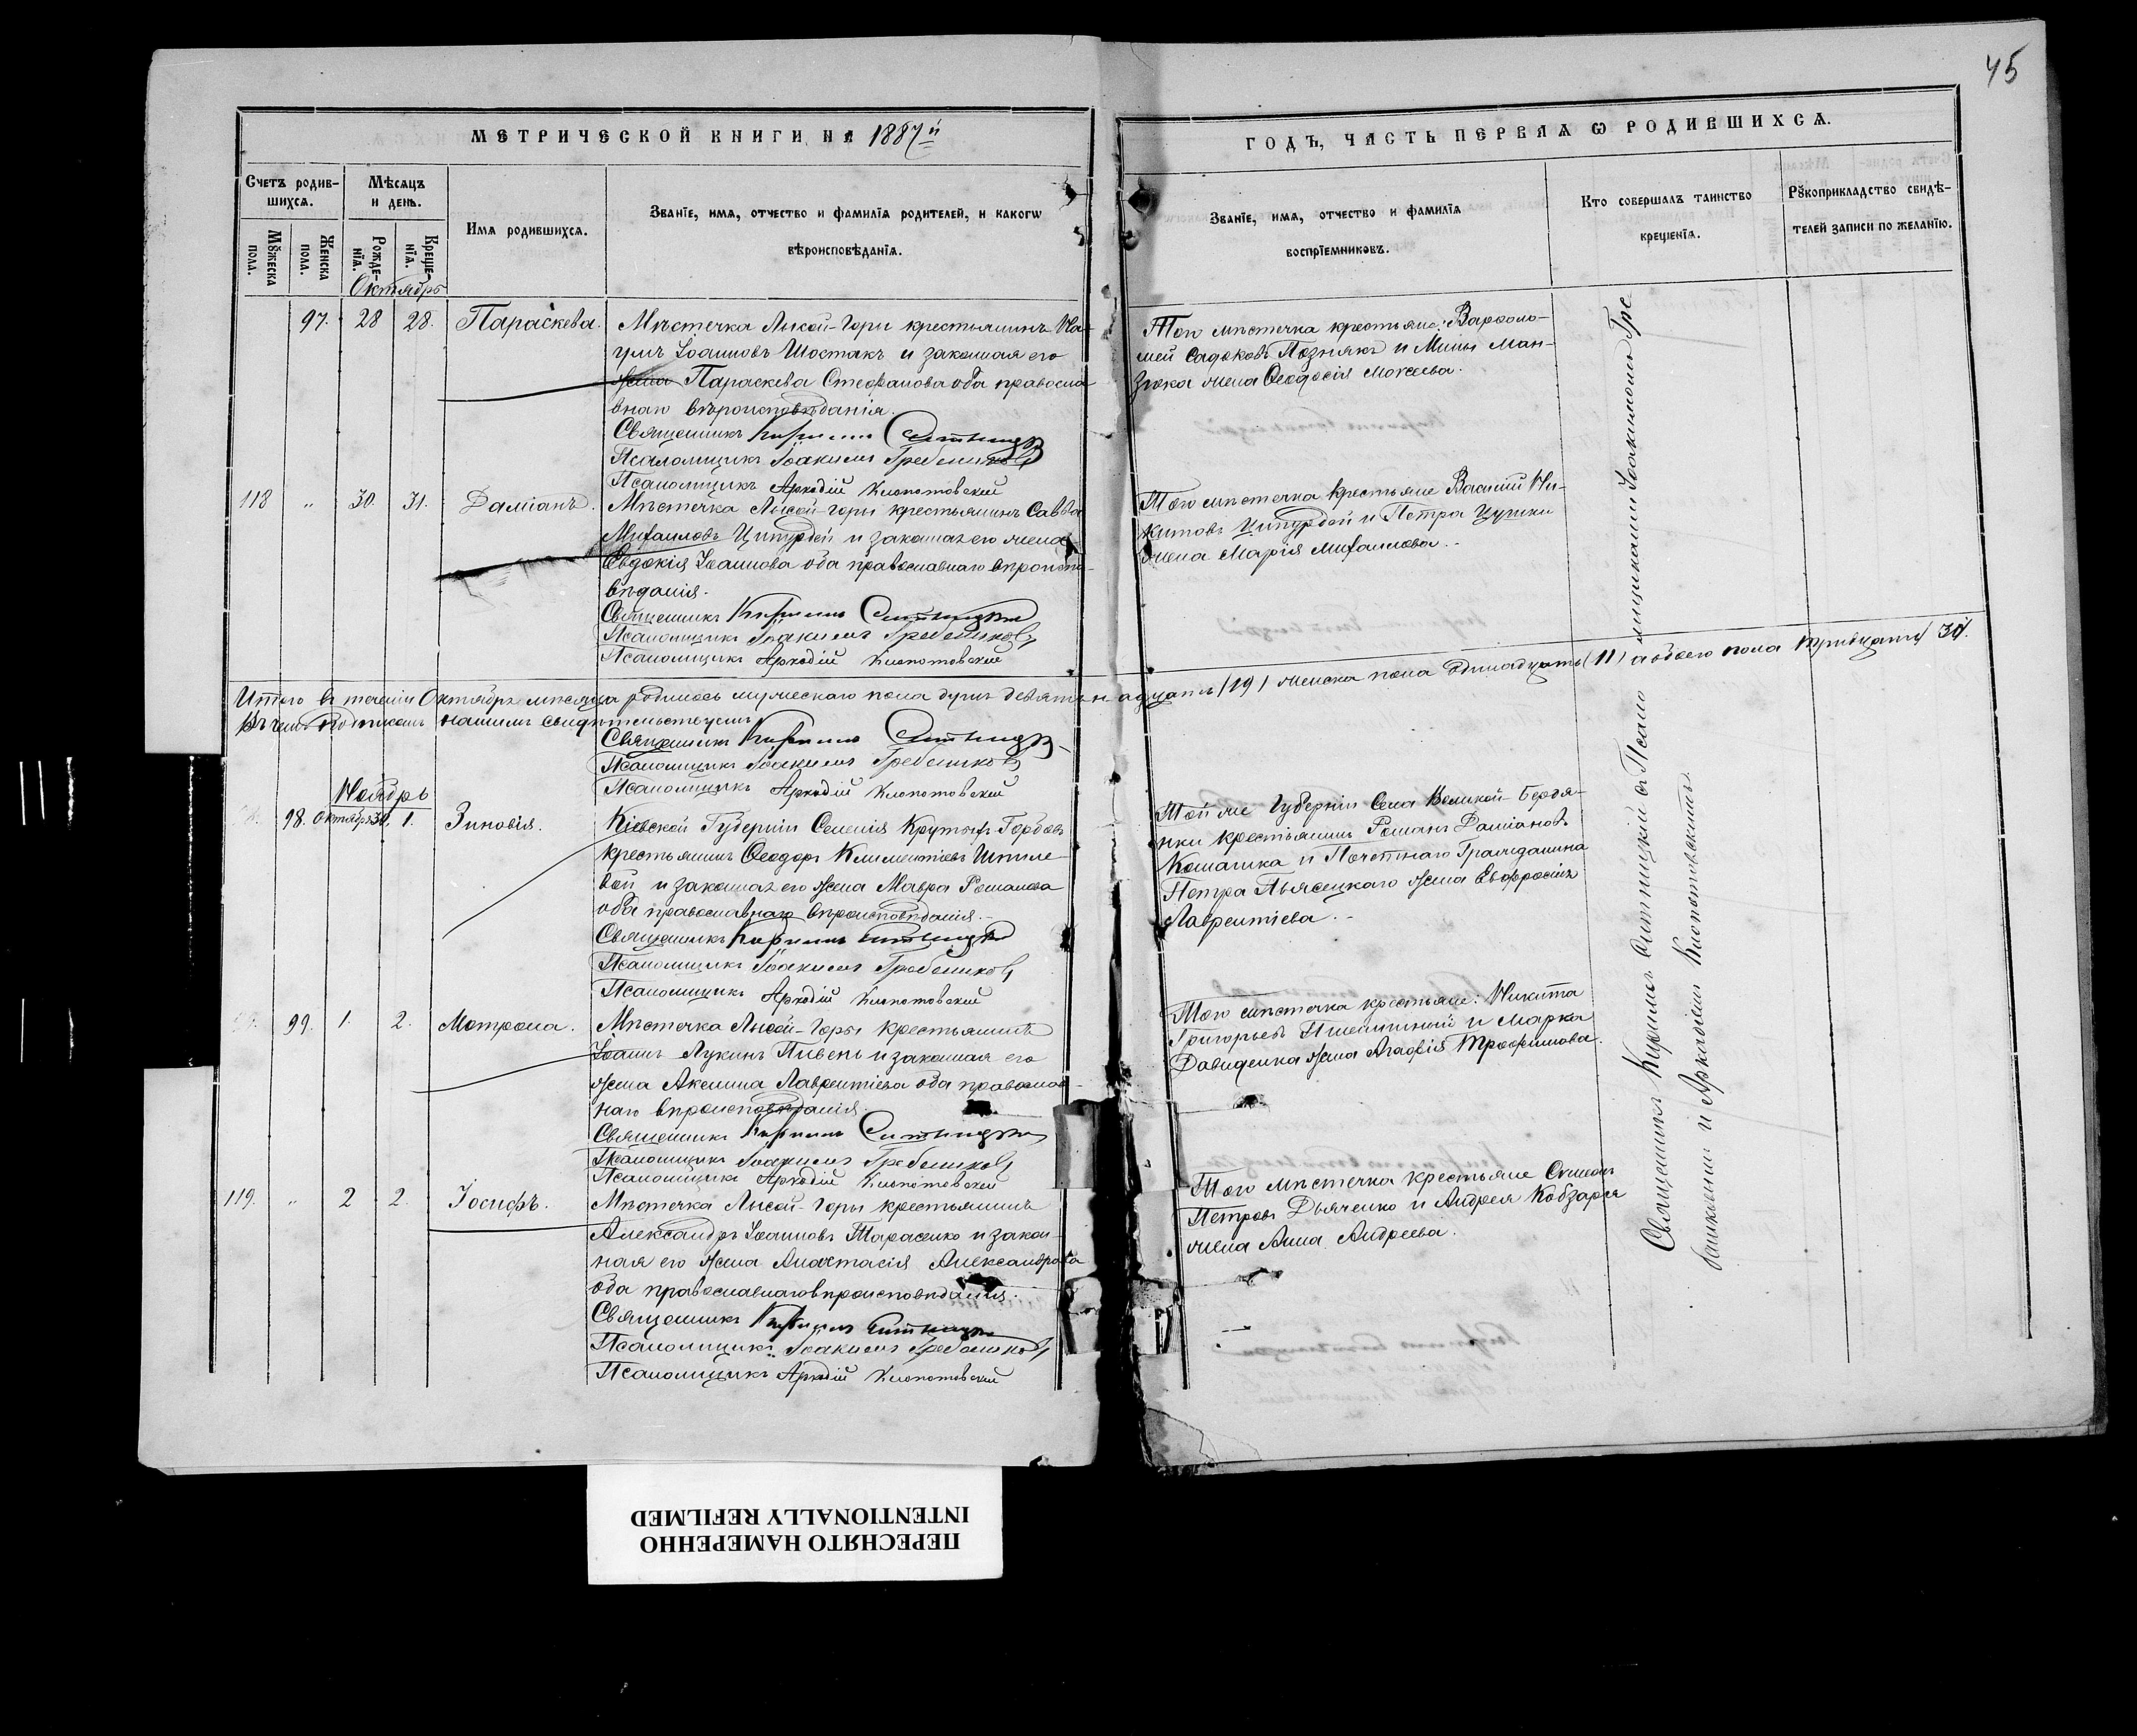 45
МЕТРИЧЕСКОЙ КНИГИ НА 1887й
ГОДЪ, ЧАСТЬ ПЕРВАЯ Ѡ РОДИВШИХСЯ.
Счетъ родив-
шихся.
Мѣсяцъ
и день.
Имя родившихся.
Званїе, имя, отчество и фамилїя родителей, и какогѡ
вѣроисповѣданїя.
Званїе, имя, отчество и фамилїя
воспрїемниковъ.
Кто совершалъ таинство
крещенїя.
Рꙋкоприкладство свидѣ-
телей записи по желанїю.
Мꙋжеска
пола.
Женска
пола.
Рожде-
нїя.
Креще-
нїя.
Октябрь
97. 28 28. Параскева.
Мѣстечка Лысой-Горы крестьянинъ На-
умъ Іоанновъ Шостакъ и законная его
жена Параскева Стефанова оба правосла
внаго вѣроисповѣданія.
Священникъ Кириллъ Ситницкій
Псаломщикъ Іоакимъ Гребенниковъ
Псаломщикъ Аркадій Клопотовский
Того мѣстечка крестьяне: Варфоло-
мей Садоковъ Познякъ и Мины Ман-
зюка жена Ѳеодосія Моисеева.
118 " 30. 31. Даміанъ.
Мѣстечка Лысой-горы крестьянинъ Савва
Михаиловъ Ципурдей и законная его жена
Евдокія Іоаннова оба православнаго вѣроиспо-
вѣданія.
Священникъ Кириллъ Ситницкій
Псаломщикъ Іоакимъ Гребенниковъ
Псаломщикъ Аркадій Клопотовский
Того мѣстечка крестьяне Василій Ни-
китовъ Ципурдей и Петра Цушки
жена Марія Михаилова.-
Итого въ теченіи Октября мѣсяца родилось мужескаго пола душъ девятьнадцать (19) женска пола одинадцать (11) а обоего пола тридцать 30.
Въ чемъ подписомъ нашимъ свидѣтельствуемъ
Священникъ Кириллъ Ситницкій
Псаломщикъ Іоакимъ Гребенниковъ
Псаломщикъ Аркадій Клопотовский
Ноябрь
98. Октября 30. 1. Зиновія.
Кіевской Губерніи Селенія Крутыхъ Горбовъ
крестьянинъ Ѳеодоръ Климентіевъ Шпиле-
вой и законная его жена Мавра Романова
оба православнаго вѣроисповѣданія.-
Священникъ Кириллъ Ситницкій
Псаломщикъ Іоакимъ Гребенниковъ
Псаломщикъ Аркадій Клопотовский
Той же Губерніи Села Великой-Березя-
нки крестьянинъ Романъ Даміановъ
и Почетнаго Гражданина
Петра Лявсецкаго жена Евфросинія
Лаврентіева.-
99. 1. 2. Матрона.
Мѣстечка Лысой-Горы крестьянинъ
Іоаннъ Лукинъ Пивень и законная его
жена Акелина Лаврентіева оба православ-
наго вѣроисповѣданія.
Священникъ Кириллъ Ситницкій
Псаломщикъ Іоакимъ Гребенниковъ
Псаломщикъ Аркадій Клопотовский
Того мѣстечка крестьяне: Никита
Григорьевъ Пшеничной и Марка
Давиденка жена Агафія Трофимова.
119. " 2 2. Іосифъ.
Мѣстечка Лысой-Горы крестьянинъ
Александръ Іоанновъ Тарасенко и закон-
ная его жена Анастасія Александрова
оба православнаго вѣроисповѣданія.
Священникъ Кириллъ Ситницкій
Псаломщикъ Іоакимъ Гребенниковъ
Псаломщикъ Аркадій Клопотовский
Того мѣстечка крестьяне Симеонъ
Петровъ Дьяченко и Андрея Кобзаря
жена Анна Андреева.
Священникъ Кириллъ Ситницкій съ Псаломщиками Іоакимомъ Гре
бенниковымъ и Аркадіемъ Клопотовскимъ.
ПЕРЕСНЯТО НАМЕРЕННО
INTENTIONALLY REFILMED